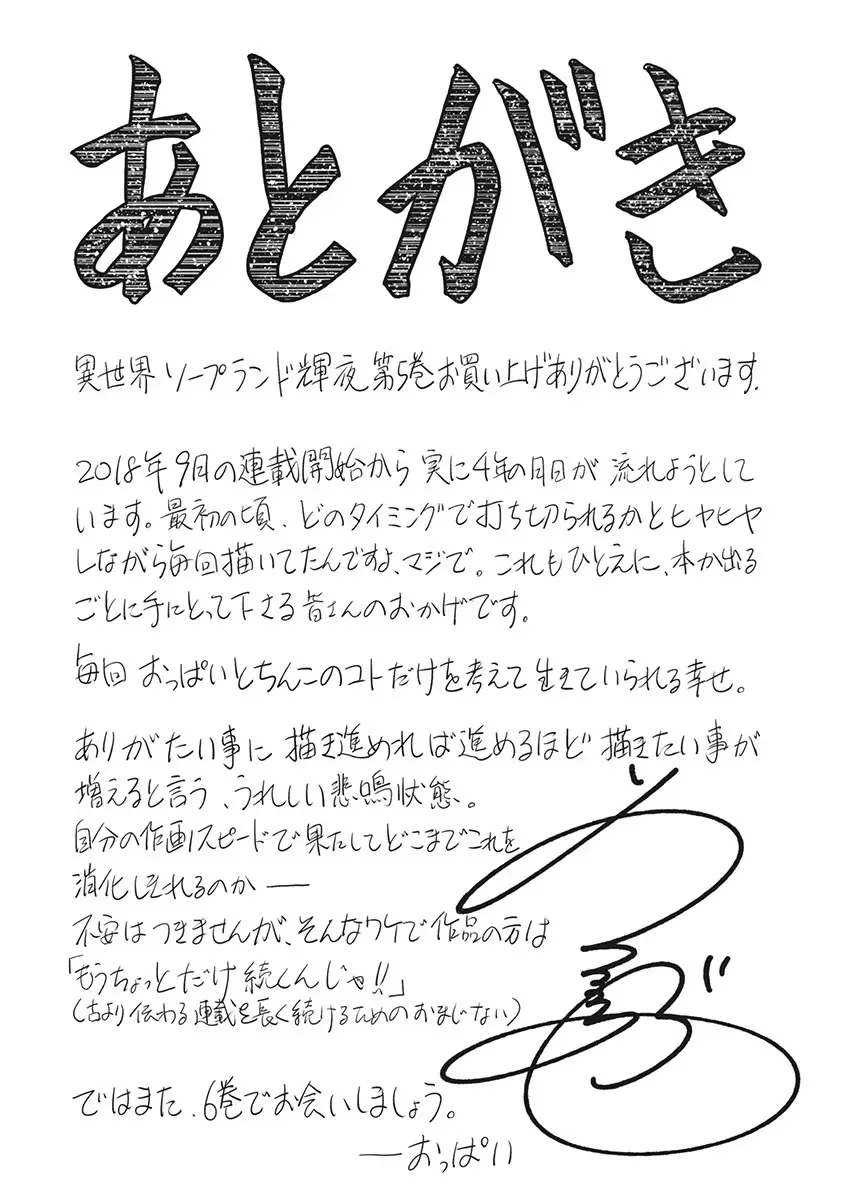 あとがき
異世界ソープランド輝夜 第5巻お買い上げありがとうございます.
2018年9月の連載開始から 実に4年の月日が 流れようとして
います。最初の頃、どのタイミングで打ち切られるかとヒヤヒヤ
しながら毎回描いてたんですよ、マジで。これもひとえに、本が出る
ごとに手にとって下さる皆さんのおかげです。
毎回 おっぱいとちんこのコトだけを考えて生きていられる幸せ。
ありがたい事に 描き進めれば進めるほど 描きたい事が
増えると言う、うれしい悲鳴状態。
自分の作画スピードで果たしてどこまでこれを
消化しきれるのか――
不安はつきませんが、そんなワケで作品の方は
「もうちょっとだけ続くんじゃ!!」
(古より伝わる連載を長く続けるためのおまじない)
ではまた、6巻でお会いしましょう。
―おっぱい